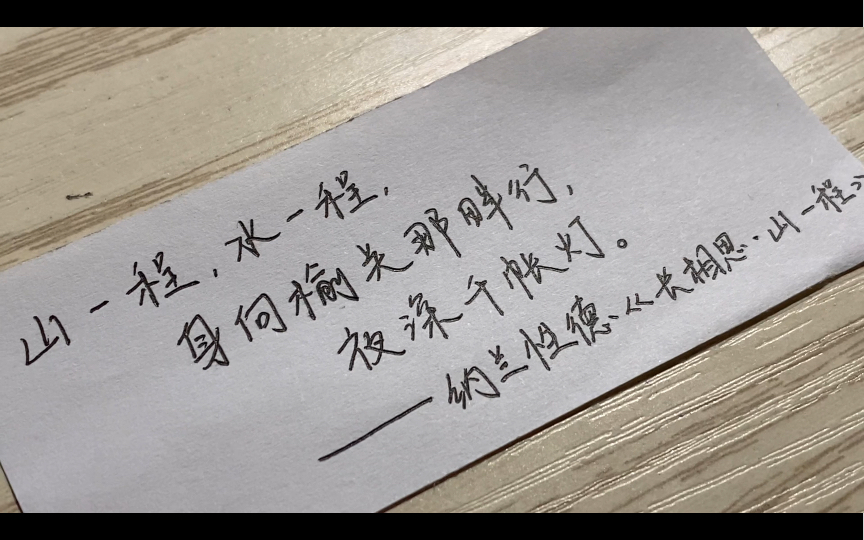 山一程，水一程，
身向榆关那畔行，
夜深千帐灯。
——纳兰性德《长相思·山一程》